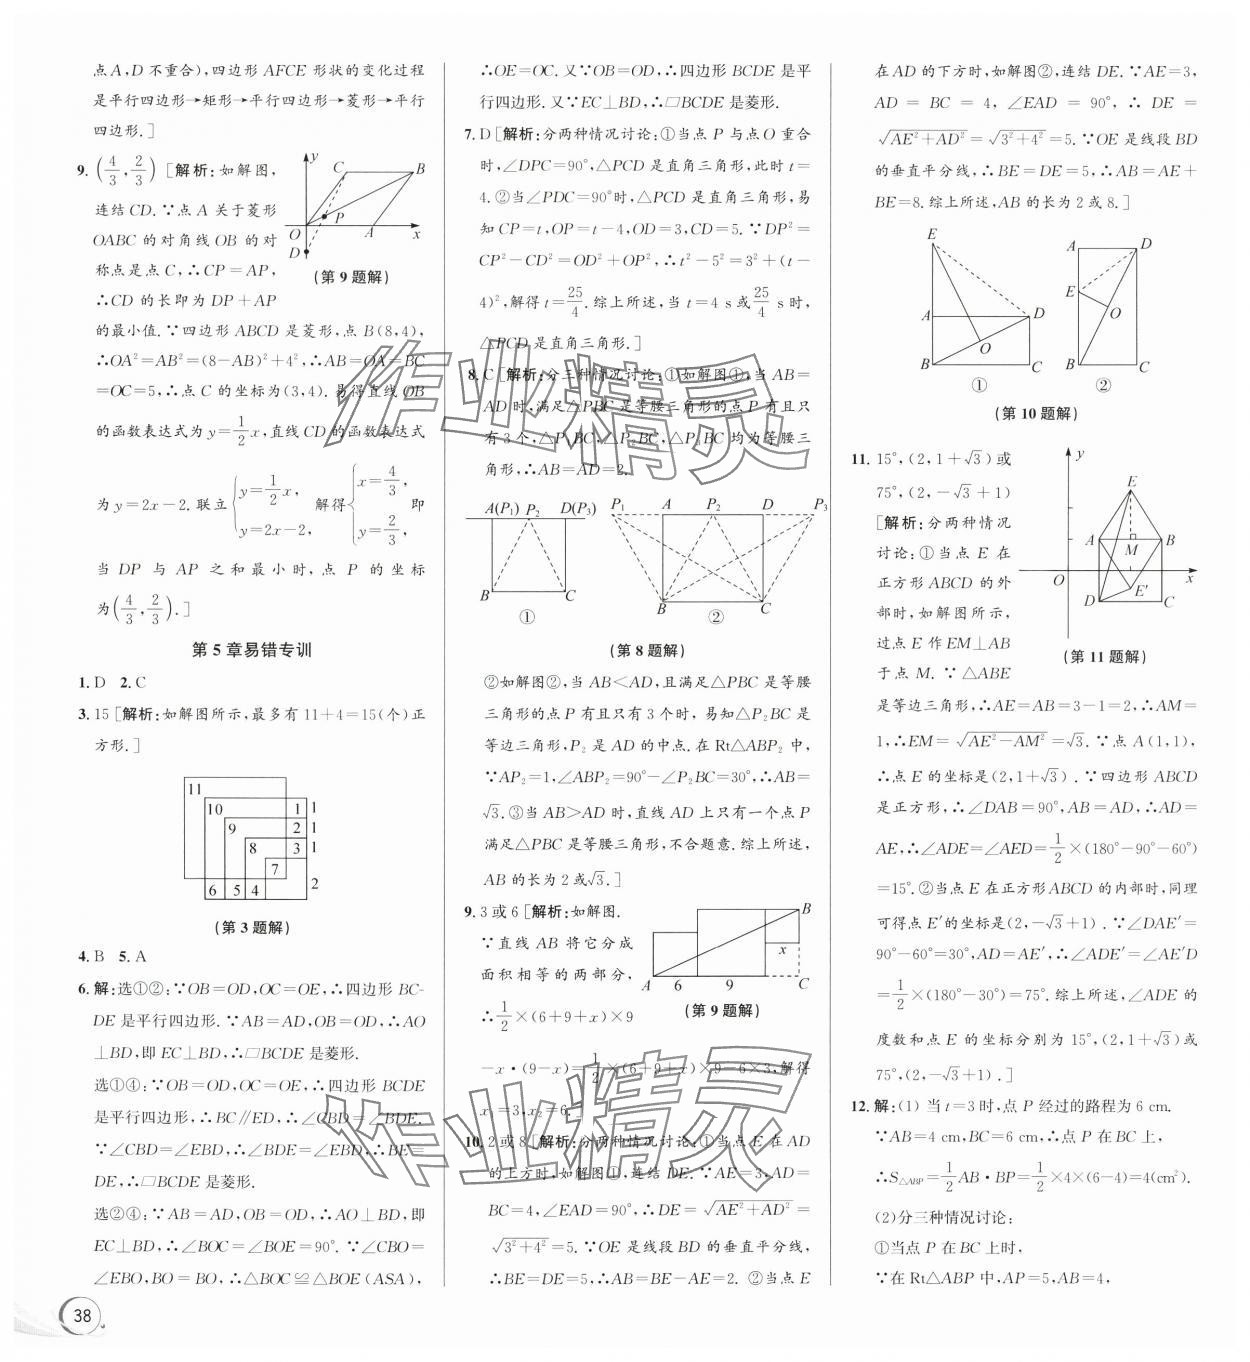 点A,D不重合),四边形AFCE形状的变化过程
是平行四边形→矩形→平行四边形→菱形→平行
四边形.]
9.(4/3,2/3) [解析:如解图,
连结CD.∵点A关于菱形
OABC的对角线OB的对
称点是点C,∴CP=AP,
∴CD的长即为DP+AP
y
C
B
P
O
A
x
D
(第9题解)
的最小值.∵四边形ABCD是菱形,点B(8,4),
∴OA²=AB²=(8-AB)²+4²,∴AB=OA=BC
=OC=5,∴点C的坐标为(3,4).易得直线OB
的函数表达式为y=1/2x,直线CD的函数表达式
为y=2x-2.联立{y=1/2x, y=2x-2, 解得{x=4/3, y=2/3, 即
当DP与AP之和最小时,点P的坐标
为(4/3,2/3).]
第5章易错专训
1.D 2.C
3.15[解析:如解图所示,最多有11+4=15(个)正
方形.]
11
10 1 1
9 2 1
8 3 1
7
6 5 4 2
(第3题解)
4.B 5.A
6.解:选①②:∵OB=OD,OC=OE,∴四边形BC-
DE是平行四边形.∵AB=AD,OB=OD,∴AO
⊥BD,即EC⊥BD,∴□BCDE是菱形.
选①④:∵OB=OD,OC=OE,∴四边形BCDE
是平行四边形,∴BC∥ED,∴∠CBD=∠BDE.
∵∠CBD=∠EBD,∴∠BDE=∠EBD,∴BE=
DE,∴□BCDE是菱形.
选②④:∵AB=AD,OB=OD,∴AO⊥BD,即
EC⊥BD,∴∠BOC=∠BOE=90°.∵∠CBO=
∠EBO,BO=BO,∴△BOC≌△BOE(ASA),
38
∴OE=OC.又∵OB=OD,∴四边形BCDE是平
行四边形.又∵EC⊥BD,∴□BCDE是菱形.
7.D[解析:分两种情况讨论:①当点P与点O重合
时,∠DPC=90°,△PCD是直角三角形,此时t=
4.②当∠PDC=90°时,△PCD是直角三角形,易
知CP=t,OP=t-4,OD=3,CD=5.∵DP²=
CP²-CD²=OD²+OP²,∴t²-5²=3²+(t-
4)²,解得t=25/4.综上所述,当t=4 s或25/4 s时,
△PCD是直角三角形.]
8.C[解析:分三种情况讨论:①如解图①,当AB=
AD时,满足△PBC是等腰三角形的点P有且只
有3个,△P₁BC,△P₂BC,△P₃BC均为等腰三
角形,∴AB=AD=2.
A(P₁) P₂ D(P₃)
B C
①
P₁ A P₂ D P₃
B C
②
(第8题解)
②如解图②,当AB<AD,且满足△PBC是等腰
三角形的点P有且只有3个时,易知△P₂BC是
等边三角形,P₂是AD的中点.在Rt△ABP₂中,
∵AP₂=1,∠ABP₂=90°-∠P₂BC=30°,∴AB=
√3.③当AB>AD时,直线AD上只有一个点P
满足△PBC是等腰三角形,不合题意.综上所述,
AB的长为2或√3.]
9.3或6[解析:如解图.
∵直线AB将它分成
面积相等的两部分,
∴1/2×(6+9+x)×9
B
x
A 6 9 C
(第9题解)
-x·(9-x)=1/2×(6+9+x)×9-6×3,解得
x₁=3,x₂=6.]
10.2或8[解析:分两种情况讨论:①当点E在AD
的上方时,如解图①,连结DE.∵AE=3,AD=
BC=4,∠EAD=90°,∴DE=√AE²+AD²=
√3²+4²=5.∵OE是线段BD的垂直平分线,
∴BE=DE=5,∴AB=BE-AE=2. ②当点E
在AD的下方时,如解图②,连结DE.∵AE=3,
AD=BC=4,∠EAD=90°,∴DE=
√AE²+AD²=√3²+4²=5.∵OE是线段BD
的垂直平分线,∴BE=DE=5,∴AB=AE+
BE=8.综上所述,AB的长为2或8.]
E
A D
O
B C
①
A D
E
O
B C
②
(第10题解)
11.15°,(2,1+√3)或
75°,(2,-√3+1)
[解析:分两种情况
讨论:①当点E在
正方形ABCD的外
部时,如解图所示,
过点E作EM⊥AB
于点M.∵△ABE
y
E
A M B
O x
E′
D C
(第11题解)
是等边三角形,∴AE=AB=3-1=2,∴AM=
1,∴EM=√AE²-AM²=√3.∵点A(1,1),
∴点E的坐标是(2,1+√3).∵四边形ABCD
是正方形,∴∠DAB=90°,AB=AD,∴AD=
AE,∴∠ADE=∠AED=1/2×(180°-90°-60°)
=15°.②当点E在正方形ABCD的内部时,同理
可得点E′的坐标是(2,-√3+1).∵∠DAE′=
90°-60°=30°,AD=AE′,∴∠ADE′=∠AE′D
=1/2×(180°-30°)=75°.综上所述,∠ADE的
度数和点E的坐标分别为15°,(2,1+√3)或
75°,(2,-√3+1).]
12.解:(1)当t=3时,点P经过的路程为6 cm.
∵AB=4 cm,BC=6 cm,∴点P在BC上,
∴S△ABP=1/2AB·BP=1/2×4×(6-4)=4(cm²).
(2)分三种情况讨论:
①当点P在BC上时,
∵在Rt△ABP中,AP=5,AB=4,
作业精灵
作业精灵